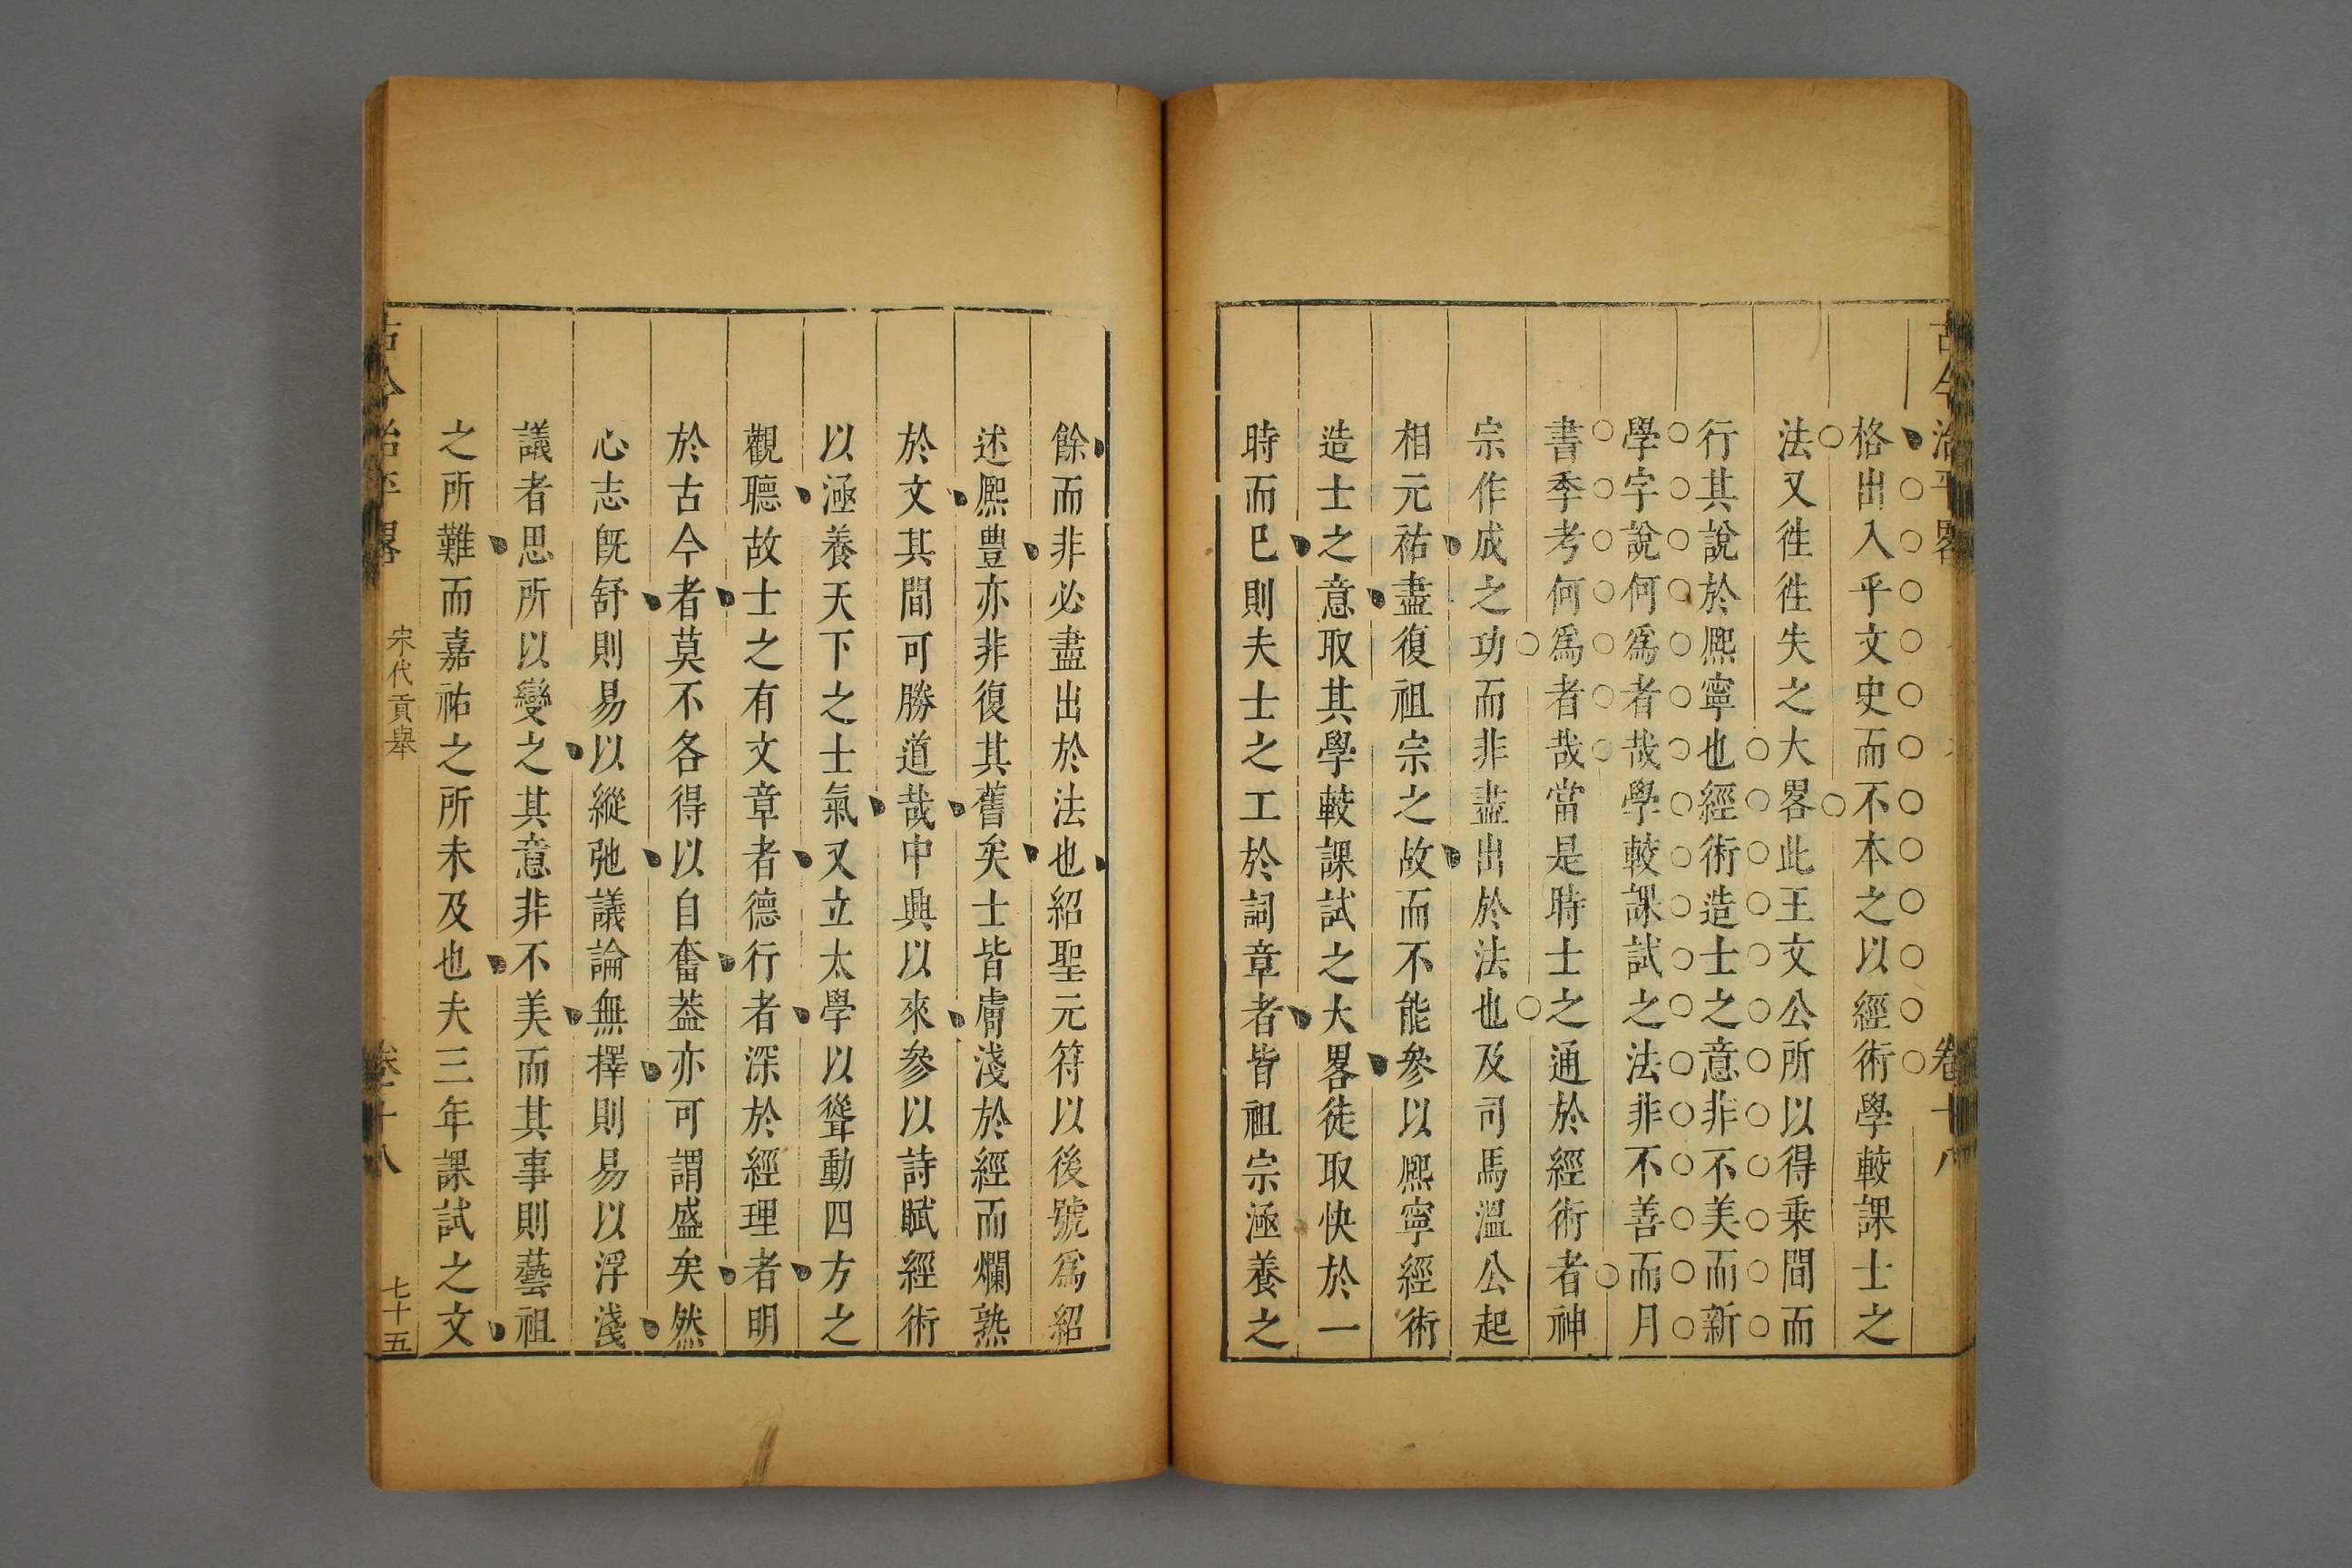 古今治平畧
卷十八
格出入乎文史而不本之以經術學較課士之
法又徃徃失之大畧此王文公所以得乗間而
行其說於熈寧也經術造士之意非不美而新
學字說何爲者哉學較課試之法非不善而月
書季考何爲者哉當是時士之通於經術者神
宗作成之功而非盡出於法也及司馬溫公起
相元祐盡復祖宗之故而不能參以熈寧經術
造士之意取其學較課試之大畧徒取快於一
時而巳則夫士之工於詞章者皆祖宗涵養之
餘而非必盡出於法也紹聖元符以後號爲紹
述熈豐亦非復其舊矣士皆膚淺於經而爛熟
於文其間可勝道哉中興以來參以詩賦經術
以涵養天下之士氣又立太學以聳動四方之
觀聽故士之有文章者德行者深於經理者明
於古今者莫不各得以自奮葢亦可謂盛矣然
心志旣舒則易以縱弛議論無擇則易以浮淺
議者思所以變之其意非不美而其事則藝祖
之所難而嘉祐之所未及也夫三年課試之文
古今治平畧
宋代貢舉
卷十八
七十五